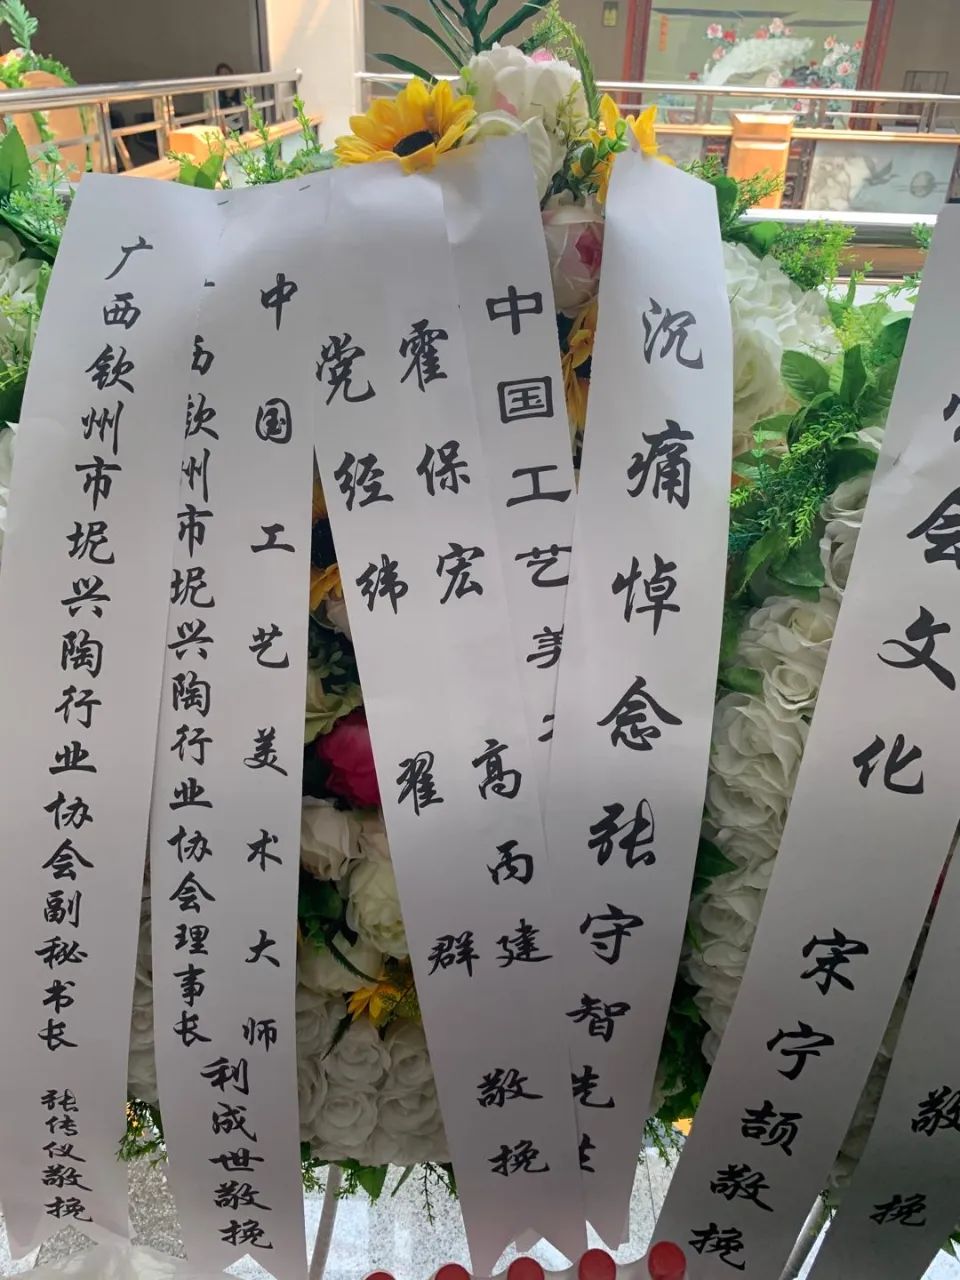 广西钦州市坭兴陶行业协会副秘书长 张传仪敬挽
西钦州市坭兴陶行业协会理事长
中国工艺美术大师
利成世敬挽
党经纬 翟群
霍保宏 高丙建
敬挽
中国工艺美
沉痛悼念张守智先生
会文化 宋宁颉敬挽
敬挽